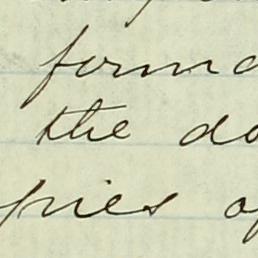 forma
the do
pies of